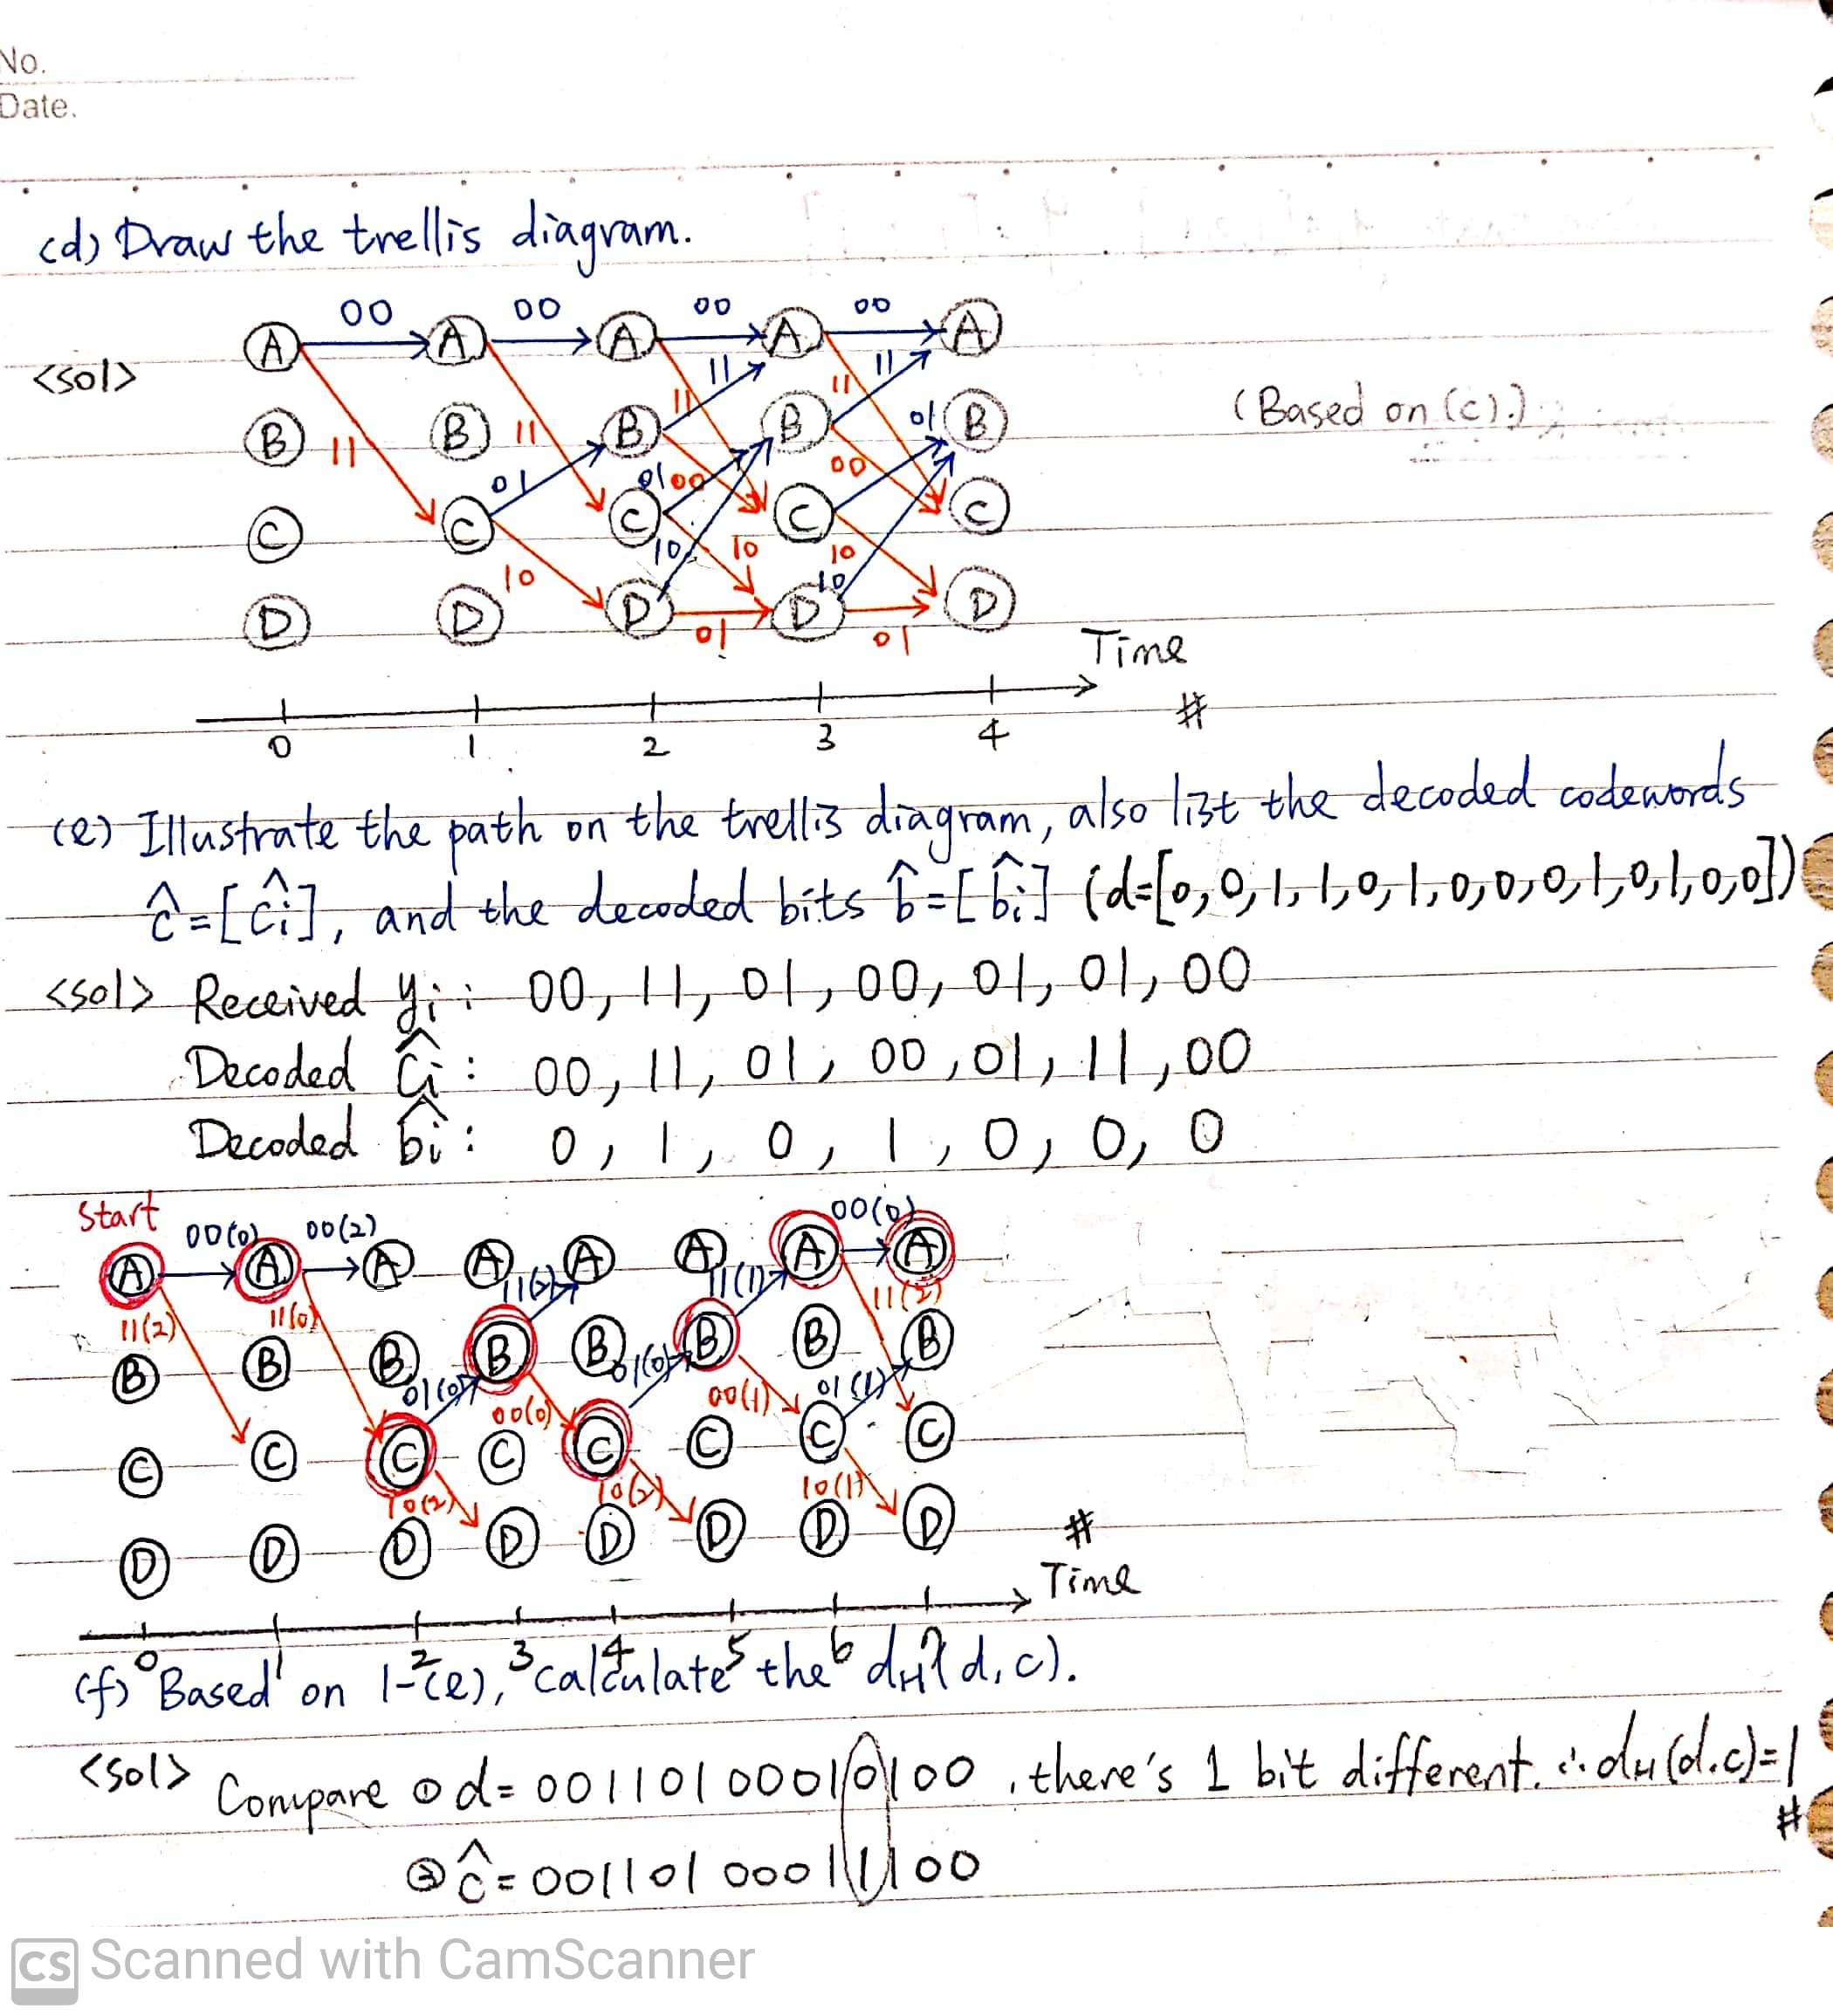 No.
Date.
(d) Draw the trellis diagram.
<sol>
00 00 00 00
A A A A A
11 11 11 11 11 11
B B B B B
01 01 00 00 01
(Based on (c).)
C C C C C
10 10 10 10 10
D D D D D
01 01
Time
0 1 2 3 4
#
(e) Illustrate the path on the trellis diagram, also list the decoded codewords
ĉ=[ĉi], and the decoded bits b̂=[b̂i] (d=[0,0,1,1,0,1,0,0,0,1,0,1,0,0])
<sol> Received yi: 00, 11, 01, 00, 01, 01, 00
Decoded ĉi: 00, 11, 01, 00, 01, 11, 00
Decoded b̂i: 0, 1, 0, 1, 0, 0, 0
Start
00(0) 00(2) 00(0)
A A A A A A A A
11(2) 11(0) 11(2) 11(1) 11(2)
B B B B B B B B
01(0) 00(0) 01(0) 00(1) 01(1)
C C C C C C C C
10(2) 10(2) 10(1)
D D D D D D D D
#
Time
0 1 2 3 4 5 6 7
(f) Based on 1-(e), calculate the dH(d,c).
<sol> Compare ① d= 00110100010100, there's 1 bit different. ∴ dH(d.c)=1
#
② ĉ= 00110100011100
CS Scanned with CamScanner